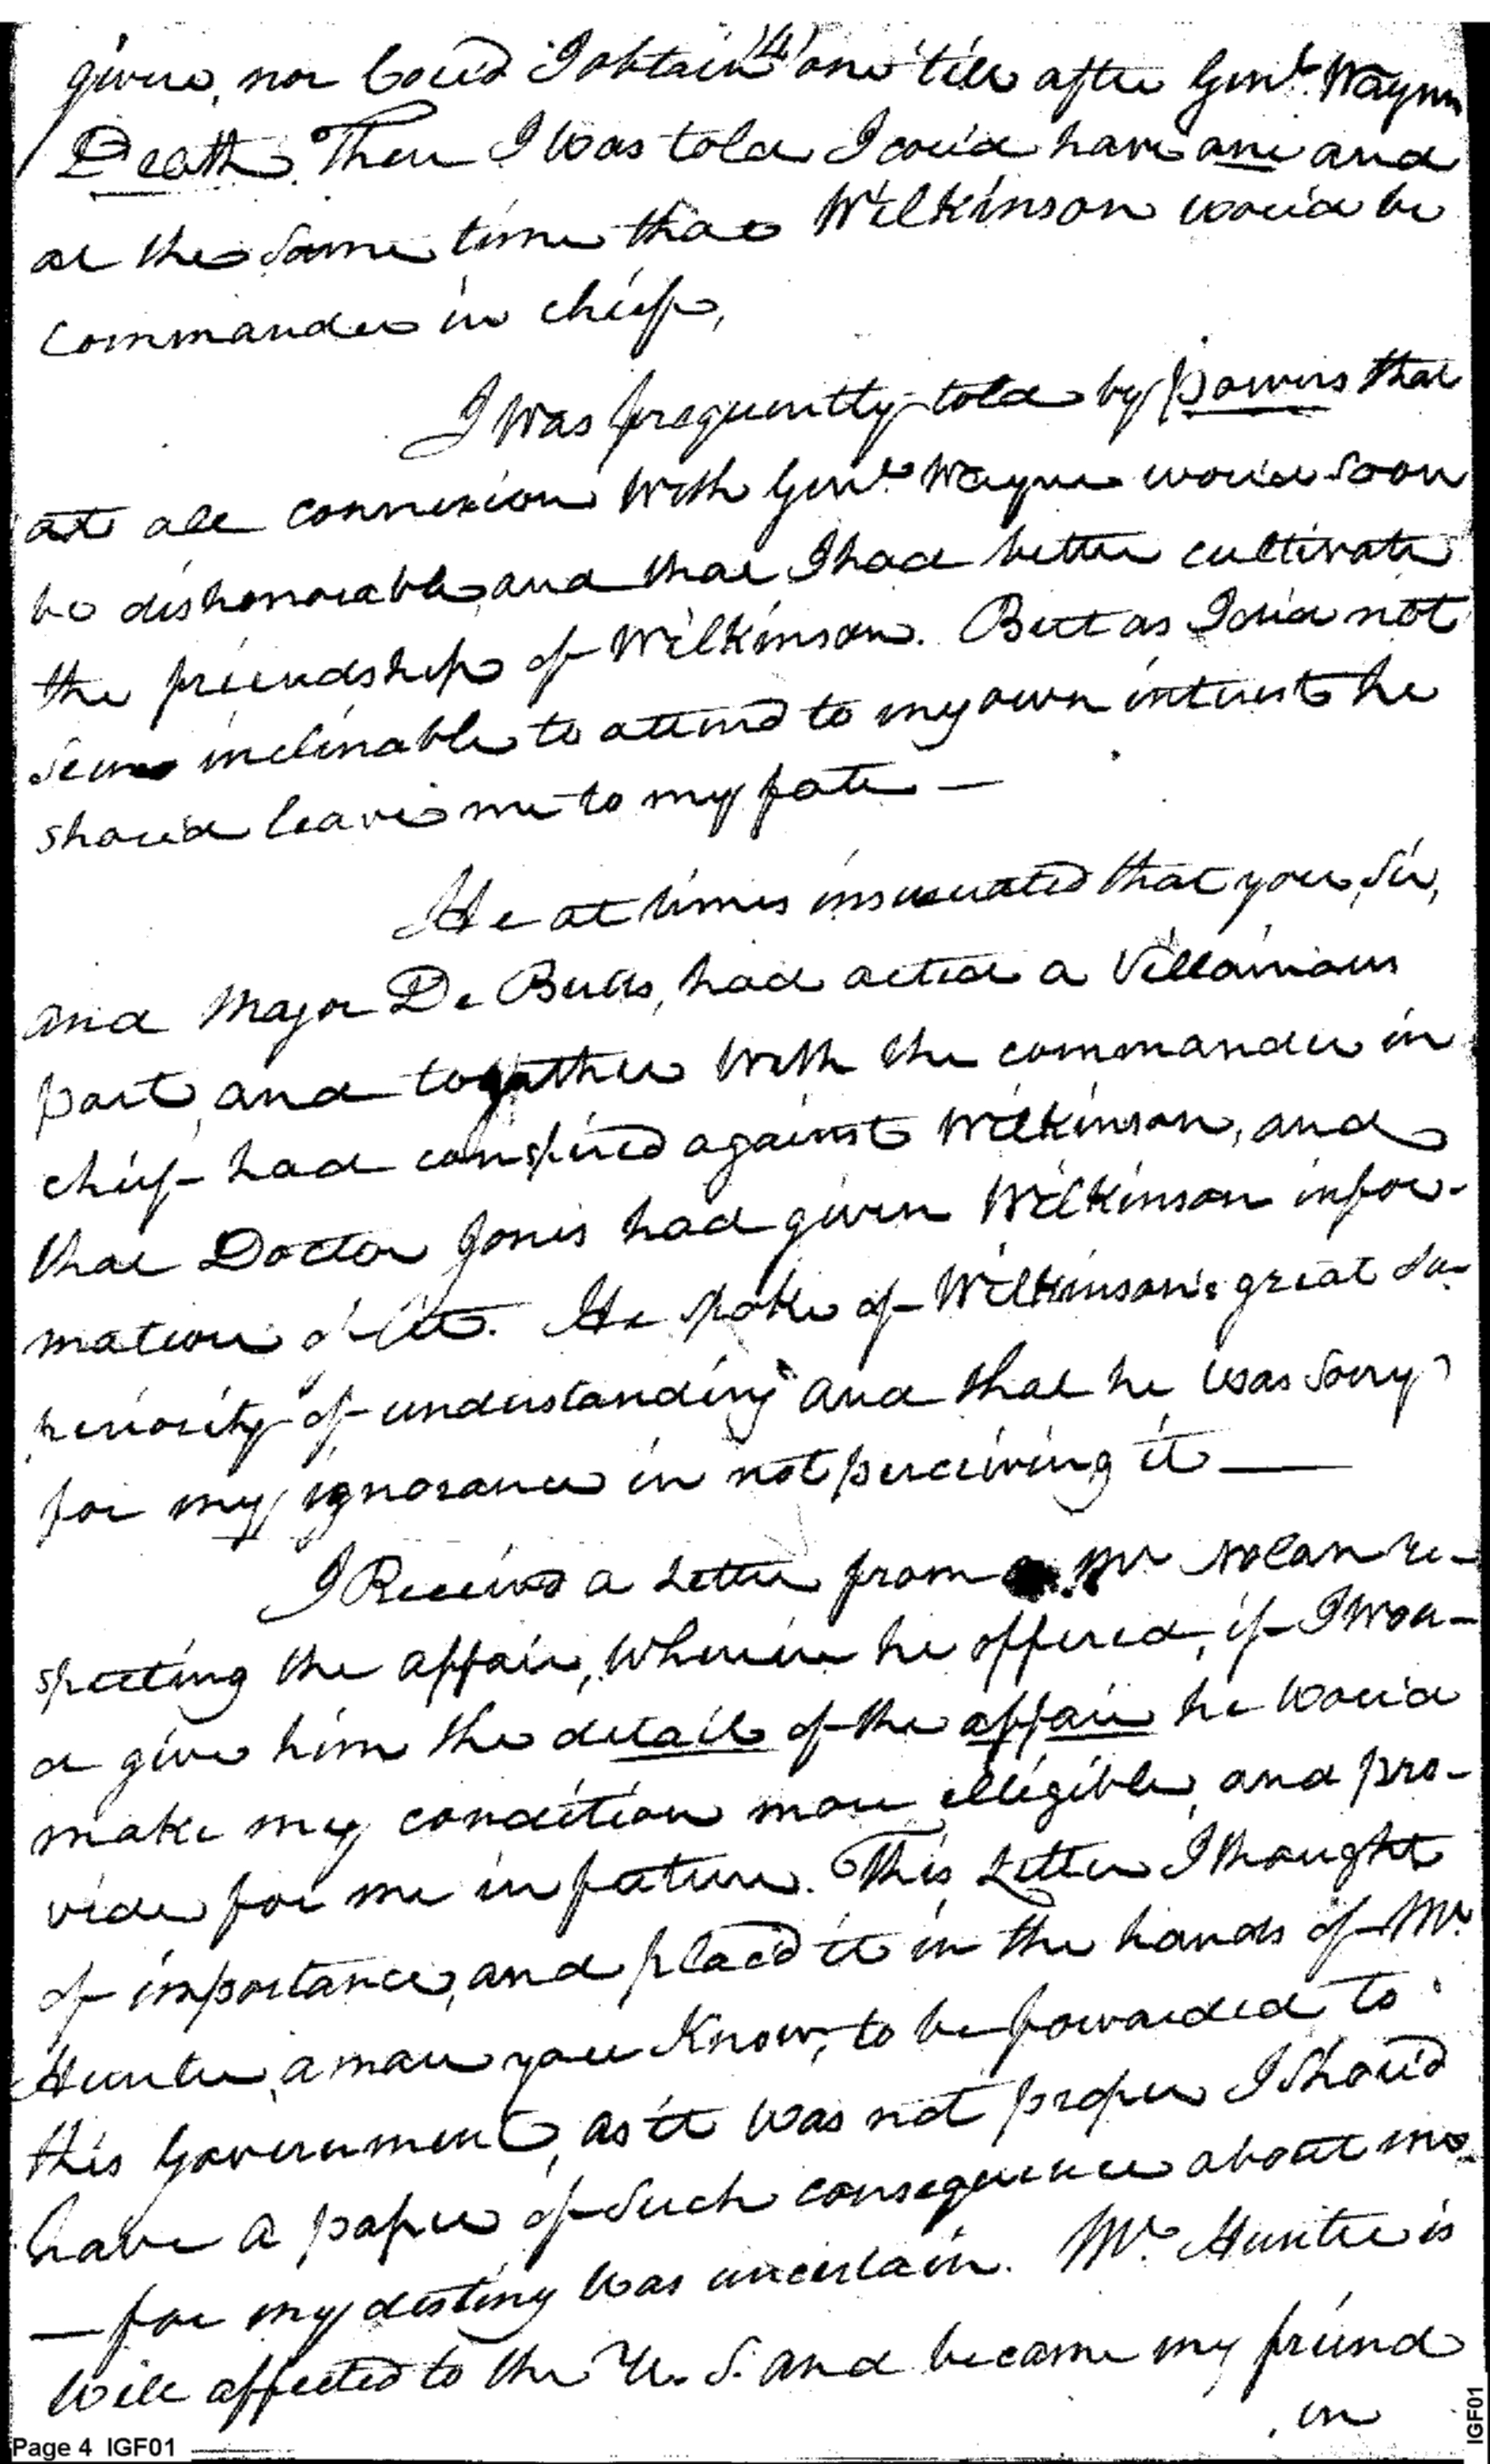 (4)
given, nor Cou'd I obtain one till after Genl. Wayns
Death. Then I was told I cou'd have one and
at the same time that Wilkinson wou'd be
Commander in chief,
I was frequently told by powers that
at all connexion with Genl. Wayne wou'd soon
be dishonorable, and that I had better cultivate
the friendship of Wilkinson. But as I did not
seem inclinable to attend to my own interest he
shou'd leave me to my fate —
He at times insinuated that you, Sir,
and Major De Butts, had acted a Villainous
part, and together with the commander in
chief had conspired against Wilkinson, and
that Doctor Jones had given Wilkinson infor-
mation of it. He spoke of Wilkinson's great su-
periority of understanding and that he was sorry
for my ignorance in not perceiving it —
I Received a Letter from Mr. Nolan re-
specting the affair, wherein he offered, if I wou-
d give him the detail of the affair he wou'd
make my condition more elligible, and pro-
vide for me in future. This Letter I thought
of importance, and plac'd it in the hands of Mr.
Hunter, a man you Know, to be forwarded to
this Government, as it was not proper I shou'd
have a paper of such consequence about me
— for my destiny was uncertain. Mr. Hunter is
well affected to the U. S. and became my friend
in
Page 4 IGF01
IGF01